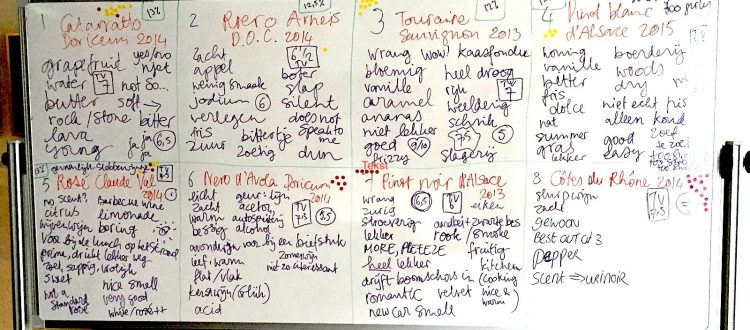 1 Catarratto 13%
Doricum 2014
grapefruit yes/no
water TV 7 njet
not so...
butter soft →
rock/stone bitter
lava ja ja
young ja ja 6,5
2 Roero Arneis 12,5%
D.O.C. 2014
zacht
appel 6 1/2 TV
boter
weinig smaak slap
jodium 6 silent
verlegen does not
fris bittertje speak to me
zuur zoetig dun
3 Touraine 12%
Sauvignon 2013
wrang wow! kaasfondue
bloemig heel droog
vanille rijk TV 7
caramel weelderig
ananas schrik
niet lekker 7,5 5
goed 9/10
frizzy slagerij
4 Pinot blanc
d'Alsace 2015
honing boerderij
vanille woods
bitter dry
fris
dolce niet echt fris
nat alleen koud
summer good zoet
gras easy
lekker
5 Rosé Claude Val
2014
no scent? barbecue wine
citrus limonade
boring
voor bij de lunch op het strand
prima, drinkt lekker weg
zoet, sappig, vrolijk
sweet nice smell
not a very good
standard
rosé white/rosé++
6 Nero d'Avola Doricum
2014
licht geur: lijm
zacht aceton TV 7
warm autospuiterij 5,5
bessig alcohol
avondwijn voor bij een biefstuk
leef: warm zomerwijn
plat/vlak not so interessant
kerstwijn (Glüh)
acid
Tekst
7 Pinot noir d'Alsace
2013
wrang 6,5 TV 8 eiken
zurig
stroeverig aardbei + zwarte bes
lekker rook/smoke
MORE, PLEEZE fruitig
heel lekker kitchen
drijft boomschors in (cooking
romantic velvet nice &
warm)
new car smell
8 Côtes du Rhône 2014
zacht TV 7,5
gewoon
BEST OUT OF 3
Pepper
Scent ⇒ urinoir